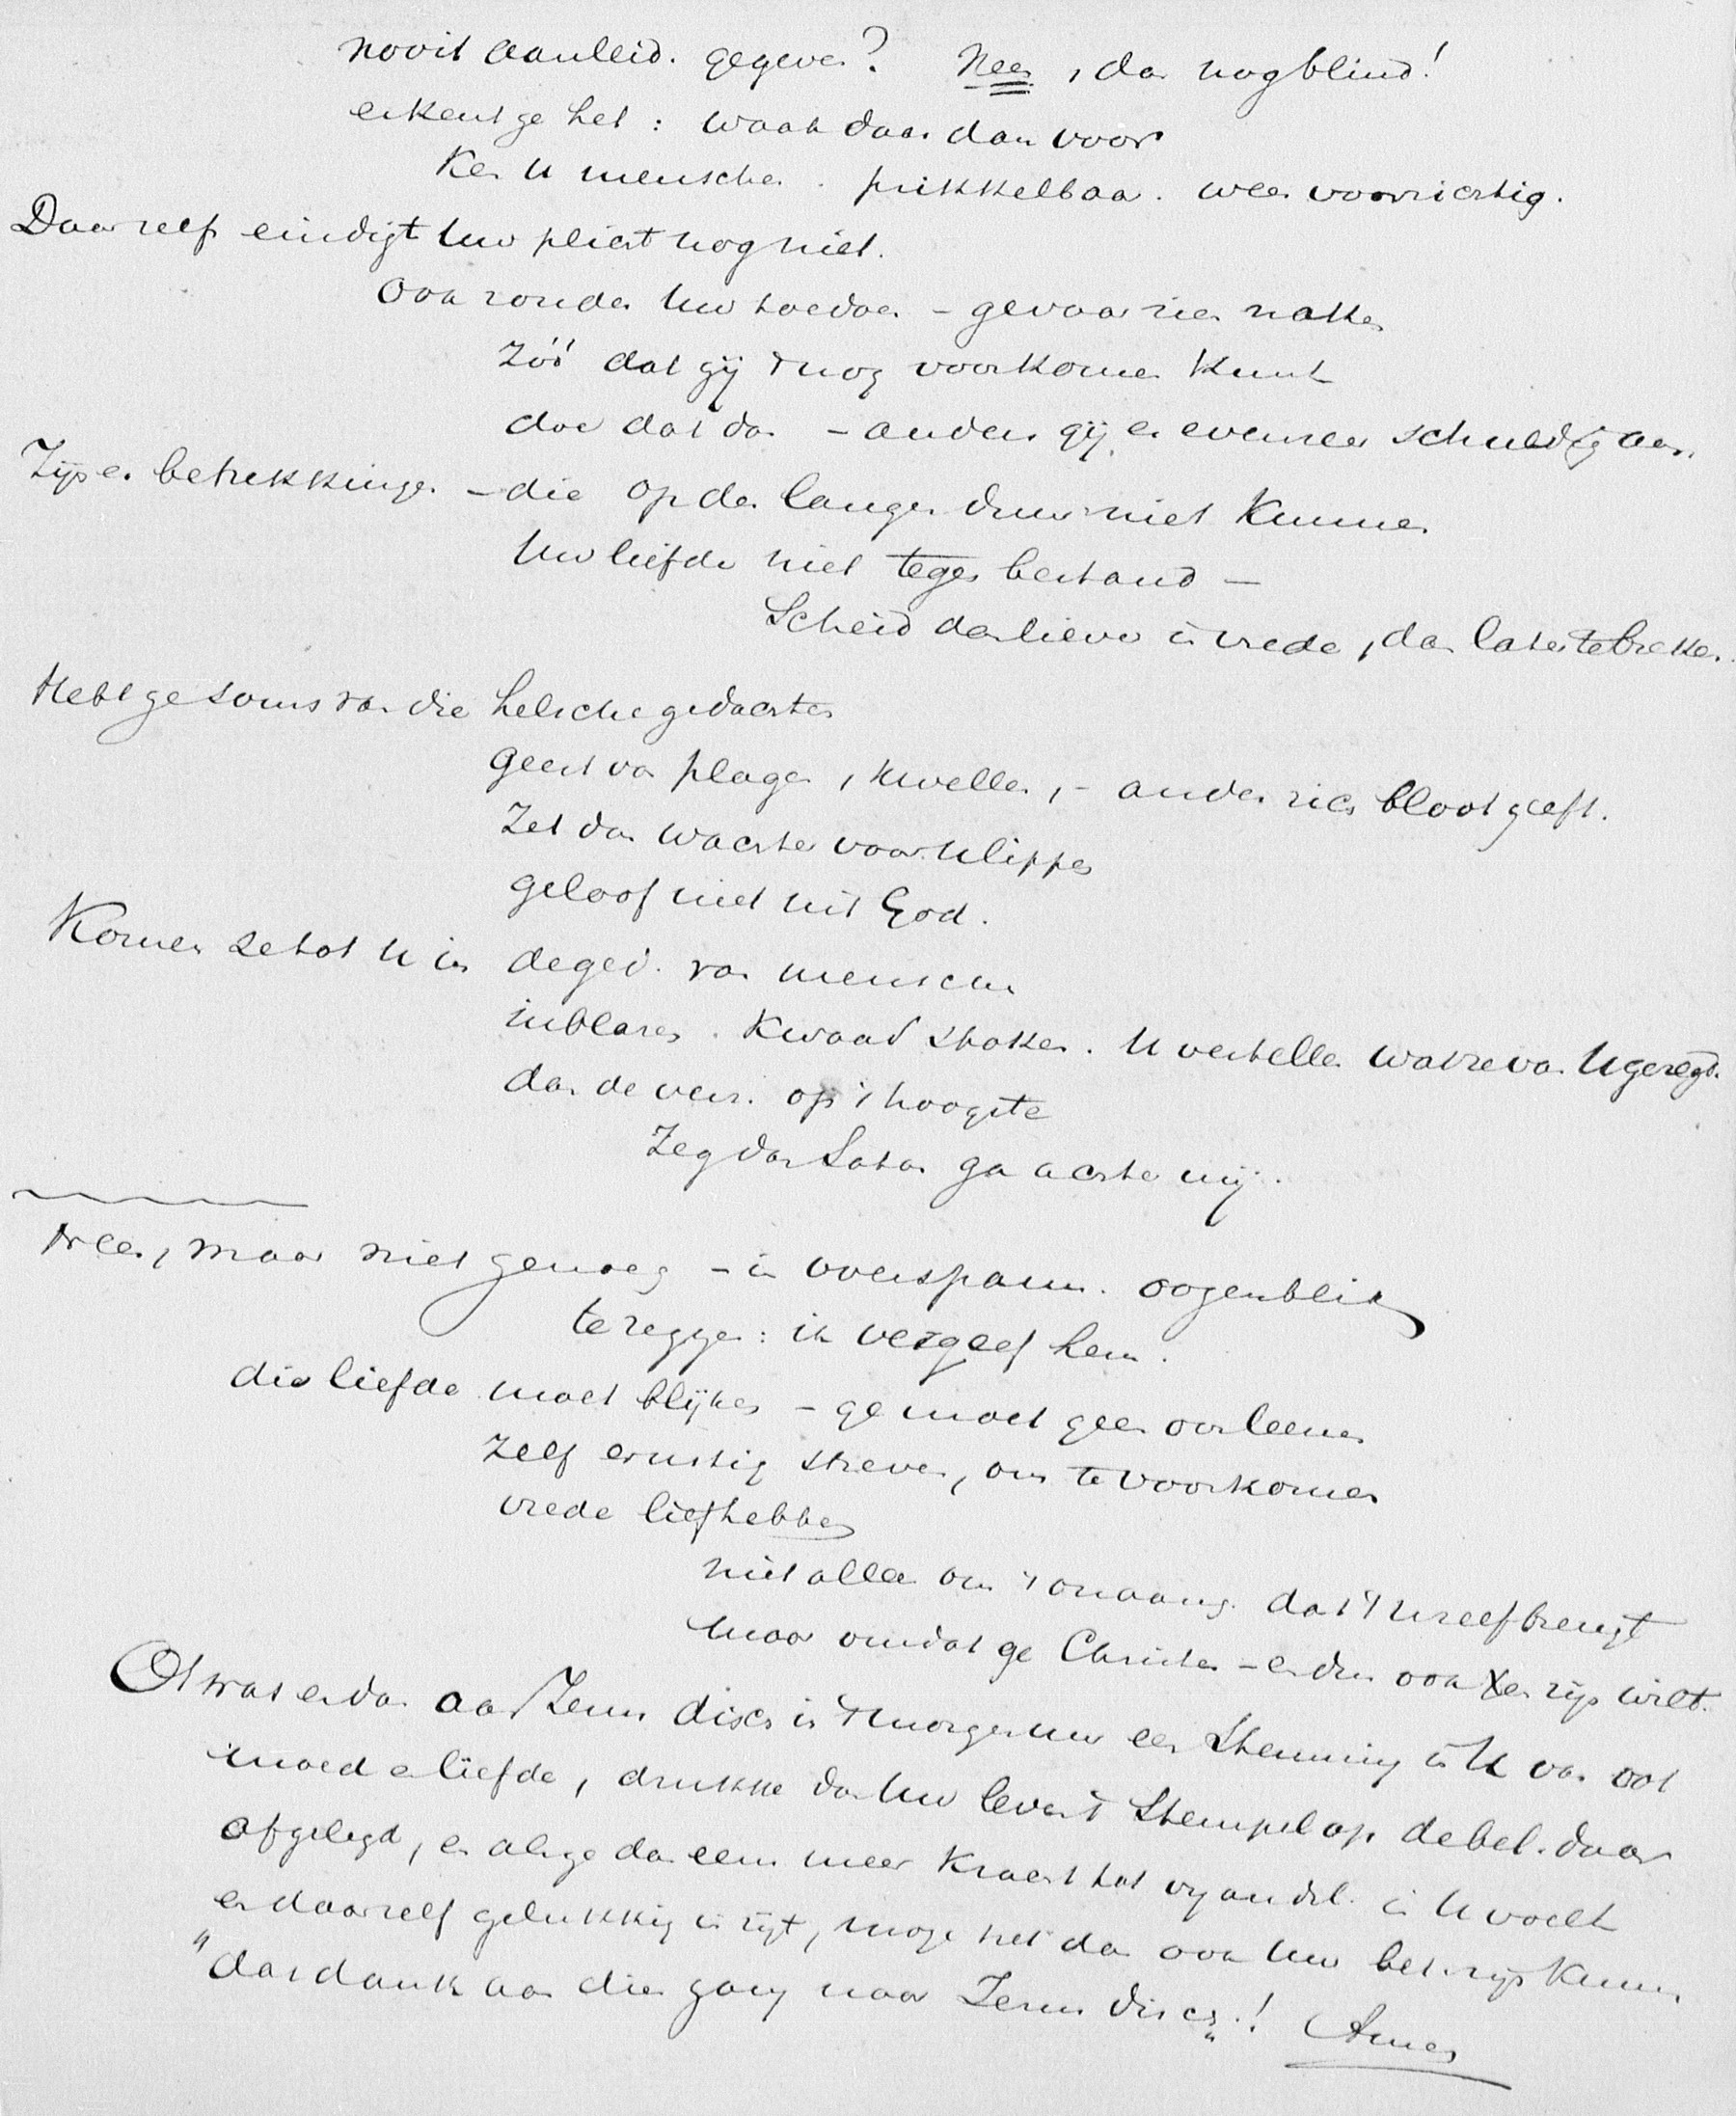 nooit aanleid. gegeven? Neen, dan nog blind!
erkent ge het: waak daar dan voor
Ken U menschen. prikkelbaar. wees voorzichtig.
Daar zelfs eindigt Uw plicht nog niet.
Ook zonder Uw toedoen - gevaar zien naken
Zóó dat gij 't nog voorkomen kunt
doe dat dan - anders gij er evenzeer schuldig aan.
Zijn er betrekkingen - die op den langen duur niet kunnen
Uw liefde niet tegen bestand -
Scheid dan liever in vrede, dan later te breken.
Hebt ge soms van die helsche gedachten
geest van plagen, kwellen, - ander zich bloot geeft.
Zet dan wachter voor Uw lippen
geloof niet uit God.
Komen ze tot U in de ged. van menschen
inblazen. Kwaad stoken. U vertellen wat ze van U gezegd.
dan de verz. op 't hoogste
Zeg dan Satan ga achter mij.
Neen, maar niet genoeg - in overspann. oogenblik
te zeggen: ik vergeef hem.
die liefde moet blijken - ge moet geen oor leenen
zelf ernstig streven, om te voorkomen
vrede liefhebben
niet alleen om 't onaang. dat 't U zelf brengt
maar omdat ge Christen - en dus ook Xen zijn wilt.
O was er dan aan Jezus disch in 't morgenuur een stemming in U van ootmoed en liefde, drukke dan Uw leven 't stempel op de bel. daar
afgelegd, en als ge dan eens meer kracht tot vyandsl. in U voelt
en daar zelf gelukkig in zijt, moge het dan ook Uw bel. zijn kunnen
"dat dank aan dien gang naar Jezus disch"! Amen